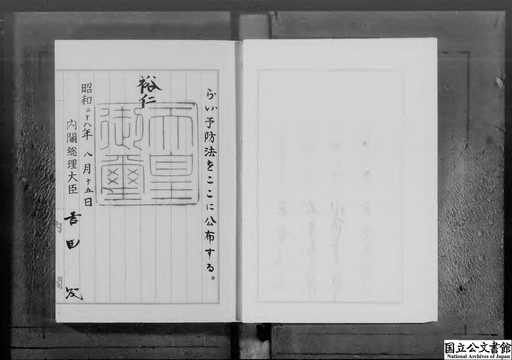 らい予防法をここに公布する。
裕仁
天皇
御璽
昭和二十八年八月十五日
内閣総理大臣 吉田茂
内閣
国立公文書館
National Archives of Japan